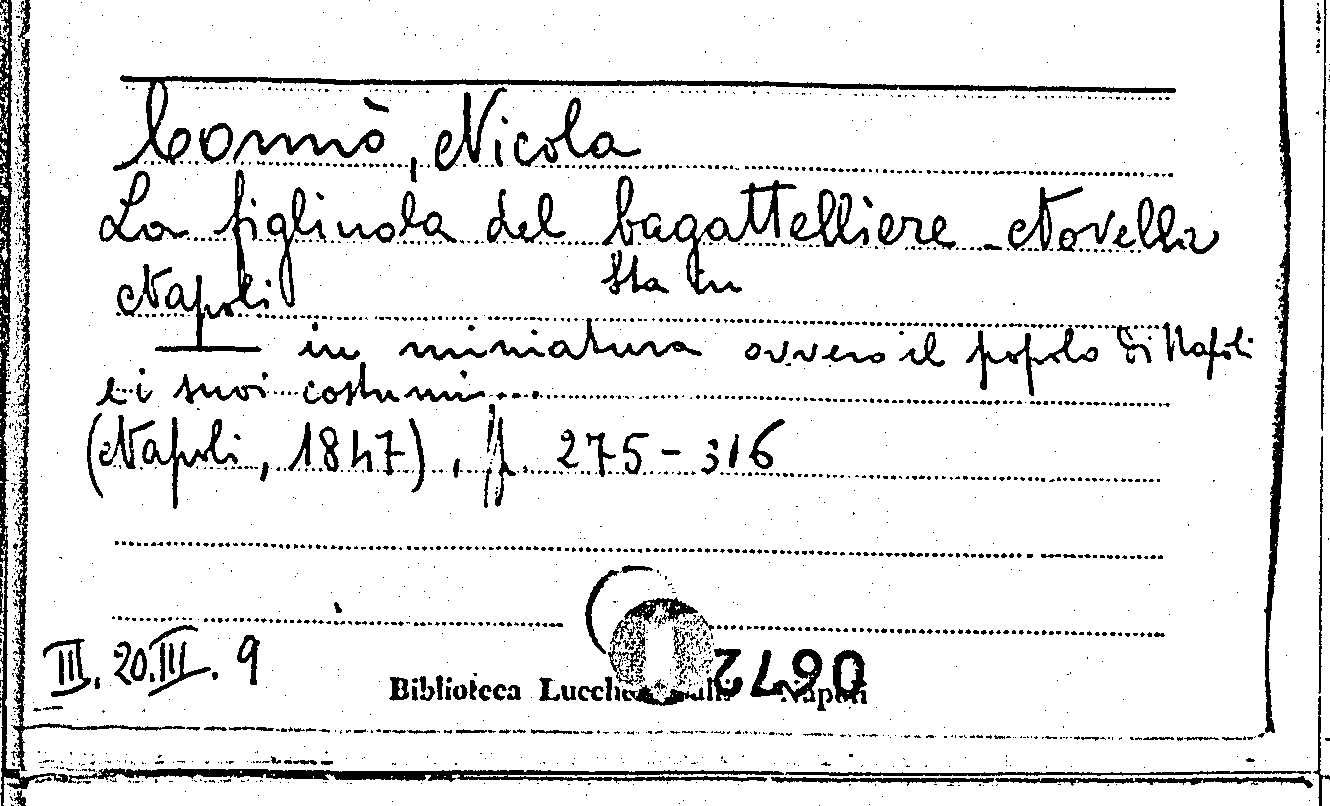 Connò, Nicola
La figliuola del bagattelliere - Novella
Napoli Sta in
in miniatura ovvero il popolo di Napoli
e i suoi costumi...
(Napoli, 1847), pp. 275-316
III. 20.III. 9
0672
Biblioteca Napoli